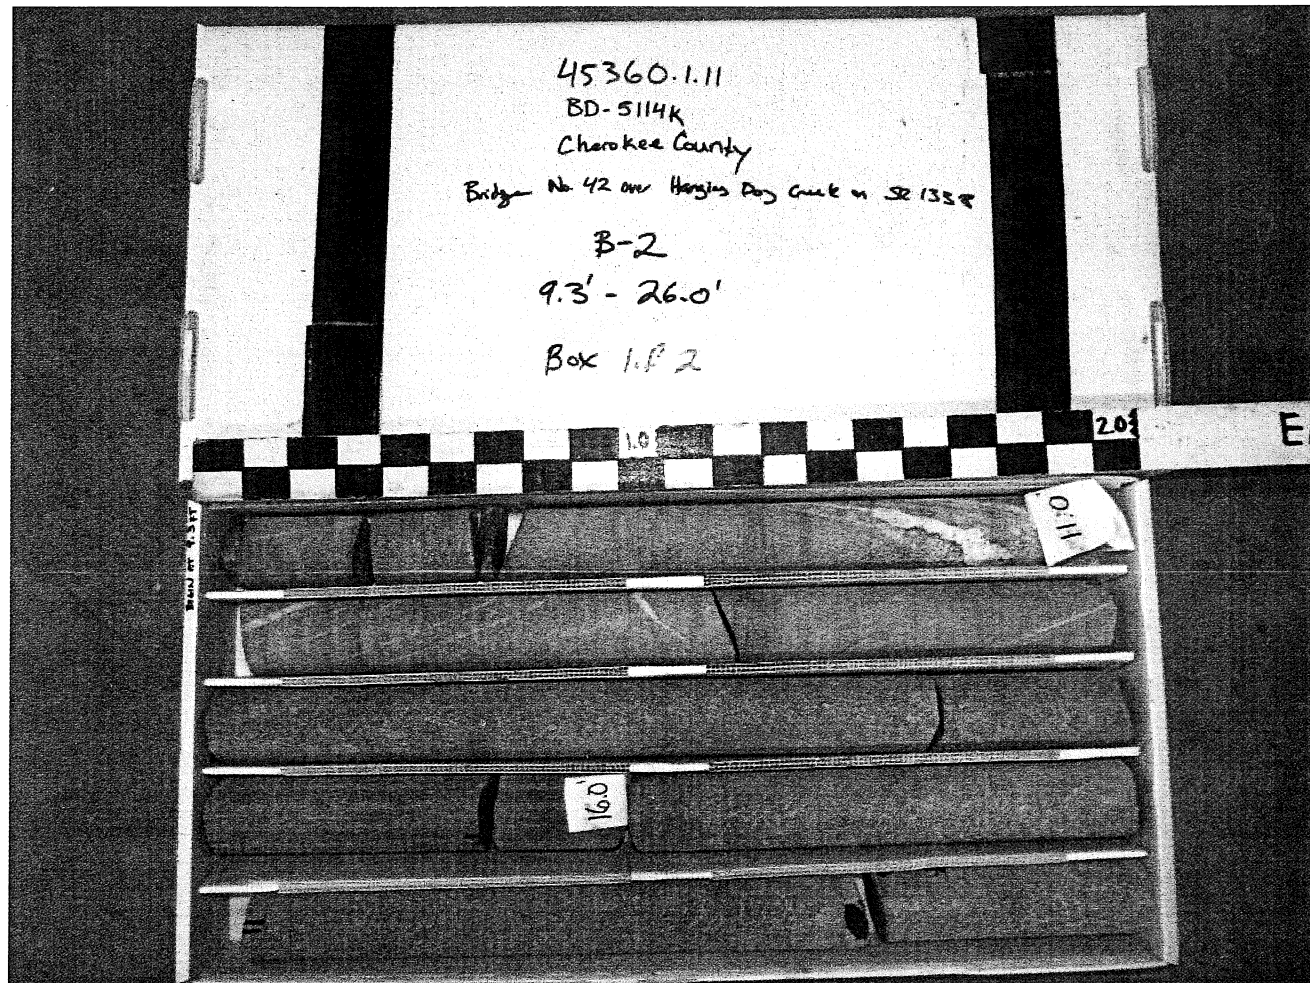 45360.1.11
BD-5114K
Cherokee County
Bridge No. 42 over Hanging Dog Creek on SR 1338
B-2
9.3' - 26.0'
Box 1 of 2
1.0
2.0
E
BEGIN AT 9.3 FT
11.0
16.0'